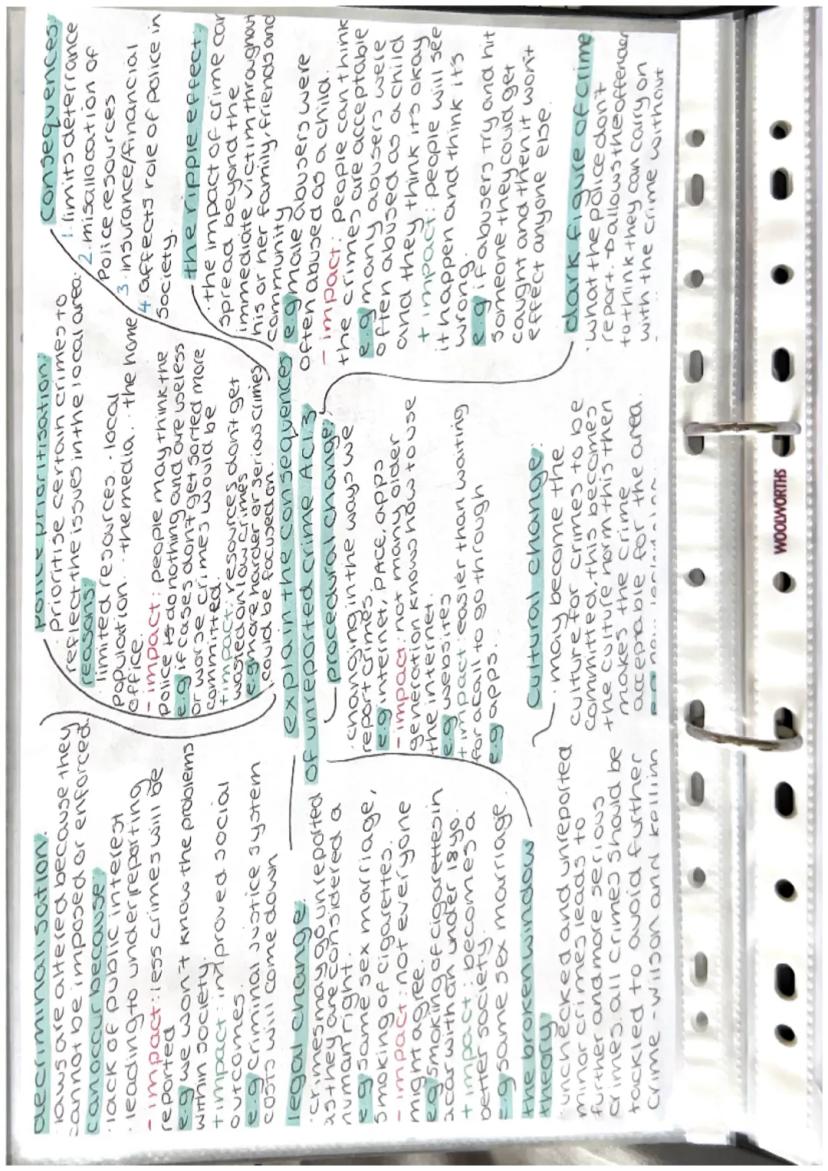 decriminalisation:
· laws are altered because they
cannot be imposed or enforced.
can occur because:
· lack of public interest
· leading to underreporting
- impact: less crimes will be
reported
e.g we won't know the problems
within society.
+ impact: improved social
outcomes.
e.g criminal justice system
costs will come down
legal change:
· crimes may go unreported
as they are considered a
human right.
e.g same sex marriage,
smoking of cigarettes.
- impact: not everyone
might agree.
e.g smoking of cigarettes in
a car with an under 18yo.
+ impact: becomes a
better society.
e.g same sex marriage.
the broken window
theory
unchecked and unreported
minor crimes leads to
further and more serious
crimes. all crimes should be
tackled to avoid further
crime - wilson and kellinn
police prioritisation:
· prioritise certain crimes to
reflect the issues in the local area.
reasons:
· limited resources. · local
population. · the media. · the home
office.
- impact: people may think the
police do nothing and are useless
e.g if cases don't get sorted more
or worse crimes would be
committed.
+ impact: resources don't get
wasted on low crimes
e.g more harder or serious crimes
could be focused on.
explain the consequences
of unreported crime AC1.3
procedural change:
· changing in the ways we
report crimes.
e.g internet, PACE, apps
- impact: not many older
generation knows how to use
the internet.
e.g websites
+ impact: easier than waiting
for a call to go through
e.g apps.
cultural change:
· may become the
culture for crimes to be
committed, this becomes
the culture norm this then
makes the crime
acceptable for the area.
consequences:
1. limits deterrance
2. misallocation of
police resources
3. insurance/financial
4. affects role of police in
society.
the ripple effect:
· the impact of crime can
spread beyond the
immediate victim throughout
his or her family, friends and
community
e.g male abusers were
often abused as a child.
- impact: people can think
the crimes are acceptable
e.g many abusers were
often abused as a child
and they think its okay
+ impact: people will see
it happen and think its
wrong.
e.g if abusers try and hit
someone they could get
caught and then it won't
effect anyone else.
dark figure of crime
· what the police don't
report. → allows the offender
to think they can carry on
with the crime without
WOOLWORTHS